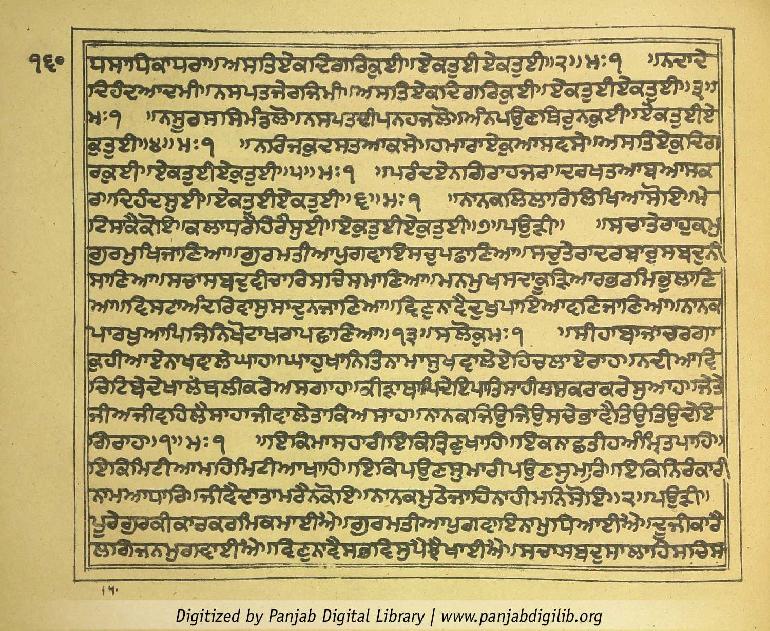 ੧੬੦
ਧਸਾਧਿਕਾਧਰਾ॥ਅਸਤਿਏਕਦਿਗਰਿਕੁਈ॥ਏਕਤੁਈਏਕਤੁਈ॥੨॥ਮਃ੧ ॥ਨਦਾਦੇ
ਦਿਹੰਦਆਦਮੀ॥ਨਸਪਤਜੇਰਜਿਮੀ॥ਅਸਤਿਏਕਦਿਗਰਿਕੁਈ॥ਏਕਤੁਈਏਕਤੁਈ॥੩॥
ਮਃ੧ ॥ਨਸੂਰਸਸਿਮੰਡਲੋ॥ਨਸਪਤਦੀਪਨਹਜਲੋ॥ਅੰਨਪਉਣਥਿਰੁਨਕੁਈ॥ਏਕਤੁਈਏ
ਕਤੁਈ॥੪॥ਮਃ੧ ॥ਨਰਿਜਕੁਦਸਤਆਕਸੇ॥ਹਮਾਰਾਏਕੁਆਸਵਸੇ॥ਅਸਤਿਏਕਦਿਗ
ਰਕੁਈ॥ਏਕਤੁਈਏਕਤੁਈ॥੫॥ਮਃ੧ ॥ਪਰੰਦਏਨਗਿਰਾਹਜਰ॥ਦਰਖਤਆਬਆਸਕ
ਰ॥ਦਿਹੰਦਸੁਈ॥ਏਕਤੁਈਏਕਤੁਈ॥੬॥ਮਃ੧ ॥ਨਾਨਕਲਿਲਾਰਿਲਿਖਿਆਸੋਇ॥ਮੇ
ਟਿਨਸਾਕੈਕੋਇ॥ਕਲਾਧਰੈਹਿਰੈਸੁਈ॥ਏਕਤੁਈਏਕਤੁਈ॥੭॥ਪਉੜੀ॥ ॥ਸਚਾਤੇਰਾਹੁਕਮੁ
ਗੁਰਮੁਖਿਜਾਣਿਆ॥ਗੁਰਮਤੀਆਪੁਗਵਾਇਸਚੁਪਛਾਣਿਆ॥ਸਚੁਤੇਰਾਦਰਬਾਰੁਸਬਦੁਨੀ
ਸਾਣਿਆ॥ਸਚਾਸਬਦੁਵੀਚਾਰਿਸਚਿਸਮਾਣਿਆ॥ਮਨਮੁਖਸਦਾਕੂੜਿਆਰਭਰਮਿਭੁਲਾਣਿ
ਆ॥ਵਿਸਟਾਅੰਦਰਿਵਾਸੁਸਾਦੁਨਜਾਣਿਆ॥ਵਿਣੁਨਾਵੈਦੁਖੁਪਾਇਆਵਣਜਾਣਿਆ॥ਨਾਨਕ
ਪਾਰਖੁਆਪਿਜਿਨਿਖੋਟਾਖਰਾਪਛਾਣਿਆ॥੧੩॥ਸਲੋਕੁਮਃ੧ ॥ਸੀਹਾਬਾਜਾਚਰਗਾ
ਕੁਹੀਆਏਨਾਖਵਾਲੇਘਾਹ॥ਘਾਹੁਖਾਨਿਤਿਨਾਮਾਸੁਖਵਾਲੇਏਹਿਚਲਾਏਰਾਹ॥ਨਦੀਆਵਿ
ਚਿਟਿਬੇਦੇਖਾਲੇਥਲੀਕਰੇਅਸਗਾਹ॥ਕੀੜਾਥਾਪਿਦੇਇਪਾਤਿਸਾਹੀਲਸਕਰਕਰੇਸੁਆਹ॥ਜੇਤੇ
ਜੀਅਜੀਵਹਿਲੈਸਾਹਾਜੀਵਾਲੇਤਾਕਿਅਸਾਹ॥ਨਾਨਕਜਿਉਜਿਉਸਚੇਭਾਵੈਤਿਉਤਿਉਦੇਇ
ਗਿਰਾਹ॥੧॥ਮਃ੧ ॥ਇਕਿਮਾਸਹਾਰੀਇਕਿਤ੍ਰਿਣੁਖਾਹਿ॥ਇਕਨਾਛਤੀਹਅੰਮ੍ਰਿਤਪਾਹਿ॥
ਇਕਿਮਿਟੀਆਮਹਿਮਿਟੀਆਖਾਹਿ॥ਇਕਿਪਉਣਸੁਮਾਰੀਪਉਣਸੁਮਾਰਿ॥ਇਕਿਨਿਰੰਕਾਰੀ
ਨਾਮਆਧਾਰਿ॥ਜੀਵੈਦਾਤਾਮਰੈਨਕੋਇ॥ਨਾਨਕਮੁਠੇਜਾਹਿਨਾਹੀਮਨਿਸੋਇ॥੨॥ਪਉੜੀ॥
ਪੂਰੇਗੁਰਕੀਕਾਰਕਰਮਿਕਮਾਈਐ॥ਗੁਰਮਤੀਆਪੁਗਵਾਇਨਾਮੁਧਿਆਈਐ॥ਦੂਜੀਕਾਰੈ
ਲਗਿਜਨਮੁਗਵਾਈਐ॥ਵਿਣੁਨਾਵੈਸਭਵਿਸੁਪੈਝੈਖਾਈਐ॥ਸਚਾਸਬਦੁਸਾਲਾਹਿਸਚਿਸ
Digitized by Panjab Digital Library | www.panjabdigilib.org